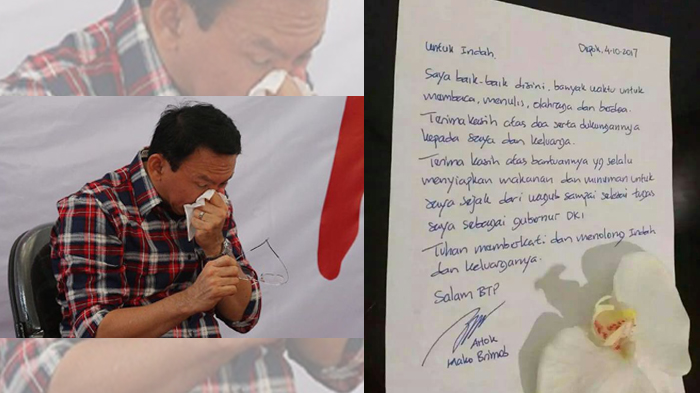 Untuk Indah. Depok, 4-10-2017
Saya baik-baik disini, banyak waktu untuk
membaca, menulis, olahraga dan berdoa.
Terima kasih atas doa serta dukungannya
kepada saya dan keluarga.
Terima kasih atas bantuannya yg selalu
menyiapkan makanan dan minuman untuk
saya sejak dari wagub sampai selesai tugas
saya sebagai gubernur DKI
Tuhan memberkati dan menolong Indah
dan keluarganya.
Salam BTP
Ahok
Mako Brimob